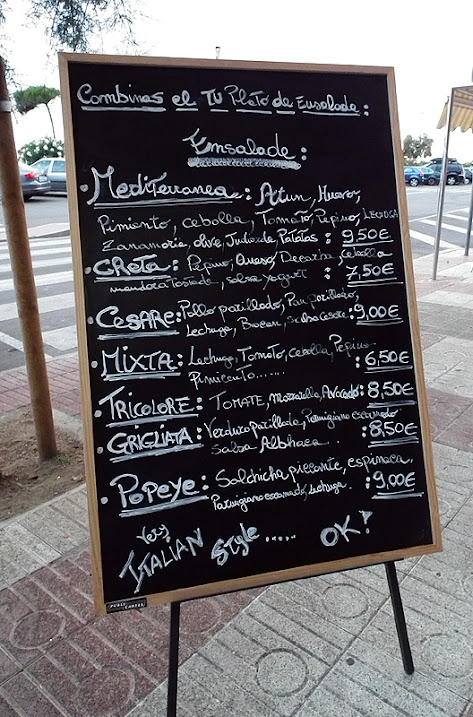 Combinas el TU Plato de Ensalade:
Emsalade:
• Mediterranea: Atun, Huevo,
Pimiento, cebolla, Tomato, Pepino, LECHUGA
Zanamoria, olive, Judiverde, Patatas: 9,50€
• CReTa: Pepino, Queso, De cabra, cebolla
mandorla Tostada, salsa yogurt : 7,50€
• CESARE: Pollo parillado, Pan parillado,
Lechuga, Bacon, salsa cesare: 9,00€
• MIXTA: Lechuga, Tomato, cebolla, Pepino
Pimiento....... 6,50€
TRICOLORE: TOMATE, mozzarella, Avocado: 8,50€
GRIGLIATA: Verdura parillada, Parmigiano escamado
Salsa Albhaca.. : 8,50€
• Popeye: Salchicha piccante, espinaca
Parmigiano escamado, lechuga. : 9,00€
Very
ITALIAN Style..... OK!